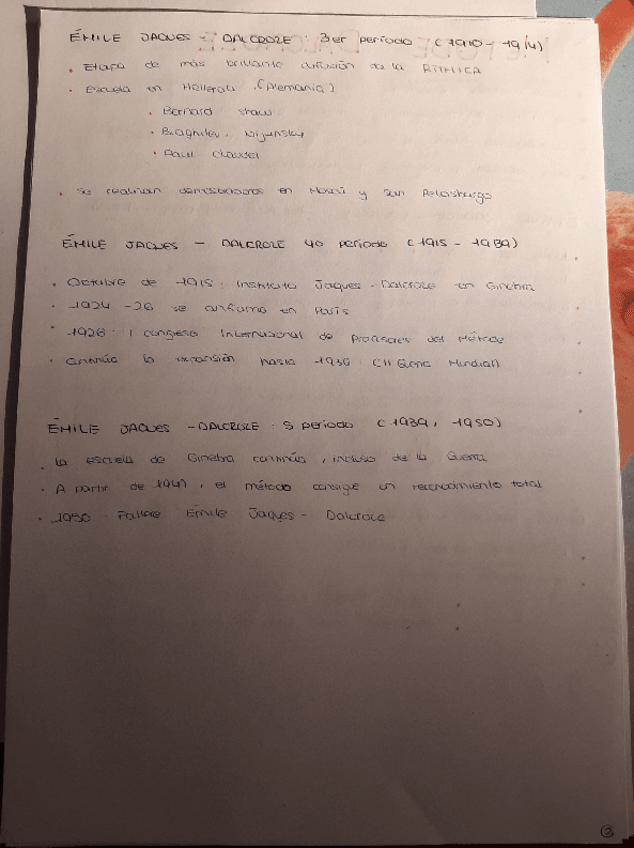 ÉMILE JAQUES - DALCROZE : 3er período (1910 - 1914)
• Etapa de más brillante difusión de la RITMICA
• Escuela en Hellerau (Alemania)
• Bernard Shaw
• Diaghilev, Nijinsky
• Paul Claudel
• Se realizan demostraciones en Moscú y San Petersburgo
ÉMILE JAQUES - DALCROZE 4o período (1915 - 1939)
• Octubre de 1915 : Instituto Jaques - Dalcroze en Ginebra
• 1924 - 26 se en París
• 1926 : I congreso Internacional de Profesores del Método
• Continúa la expansión hasta 1936 (II Guerra Mundial)
ÉMILE JAQUES - DALCROZE : 5 período (1939, 1950)
• La escuela de Ginebra continúa, incluso de la Guerra
• A partir de 1947, el método consigue un reconocimiento total
• 1950 Fallece Émile Jaques - Dalcroze
3